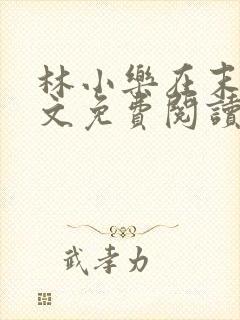 林小樂在末
文免費閱讀
武孝力